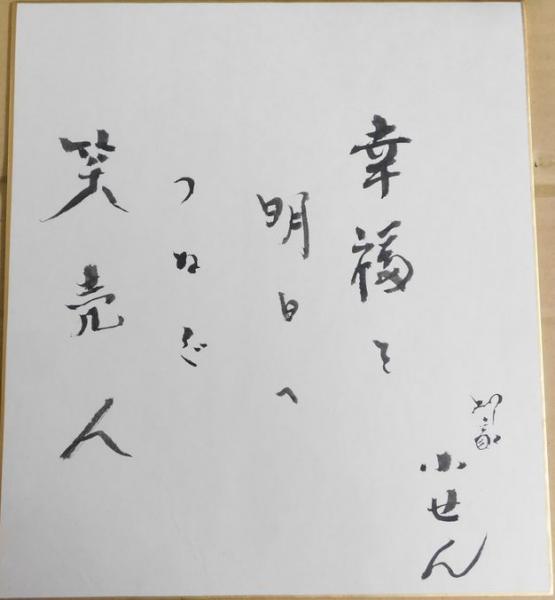 小せん
幸福を
明日へ
つなぐ
笑売人